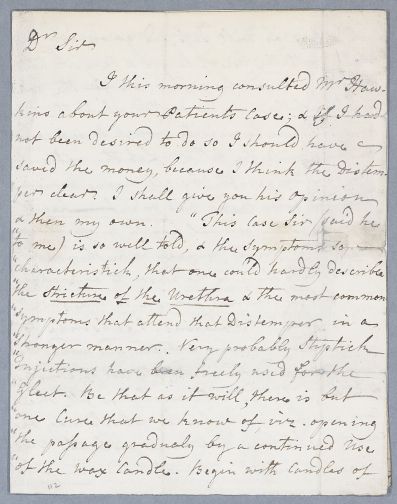 Dr Sir
I this morning consulted Mr Haw-
kins about your Patients Case; & if I had
not been desired to do so I should have
saved the money, because I think the Distem-
per clear. I shall give you his Opinion
& then my own. "This case Sir (said he
"to me) is so well told, & the Symptoms so
"characteristick, that one could hardly describe
"the Stricture of the Urethra & the most common
"Symptoms that attend that Distemper, in a
"stronger manner. Very probably Styptick
"Injections have been freely used for the
"gleet. Be that as it will, there is but
"one Cure that we know of viz. opening
"the passage gradualy by a continued Use
"of the wax Candle. Begin with Candles of